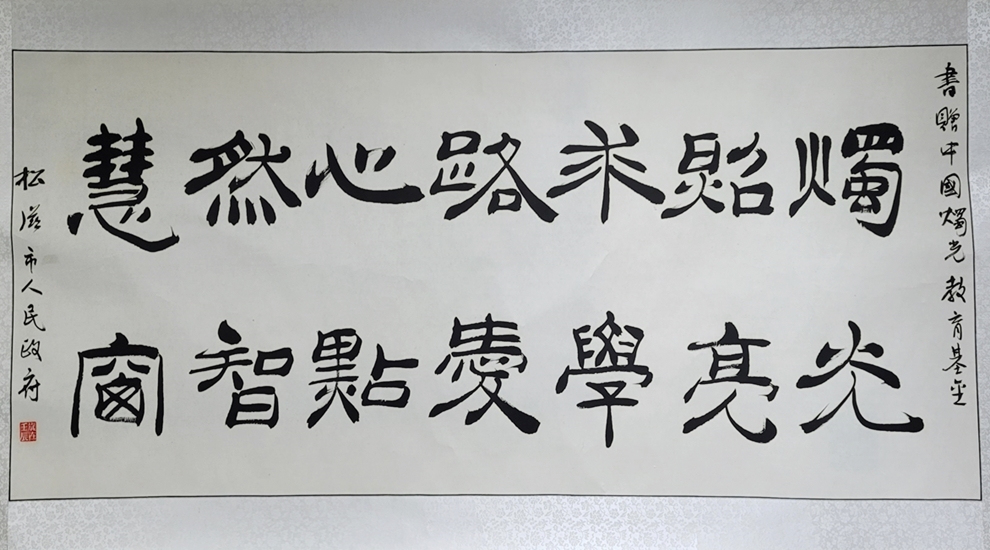 書贈中國燭光教育基金
燭光
照亮
求學
路愛
心點
然智
慧窗
松滋市人民政府